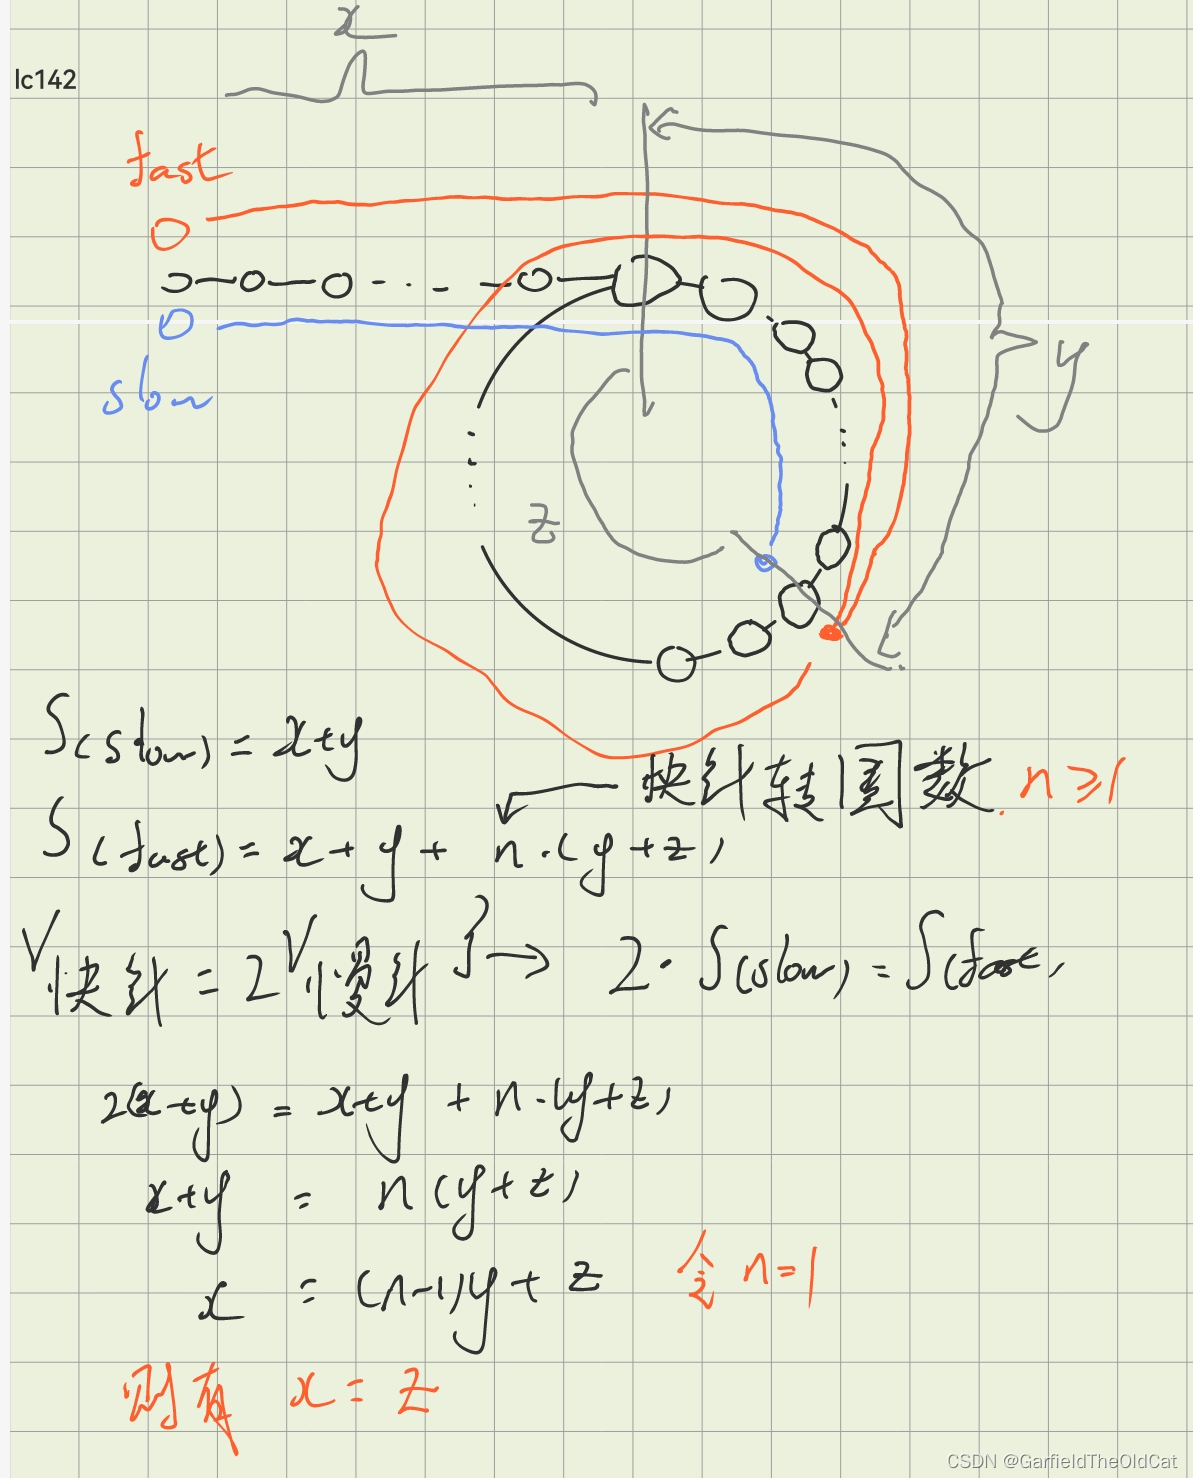 x
lc142
fast
slow
y
z
S(slow) = x+y
快针转圈数. n ≥ 1
S(fast) = x + y + n·(y+z)
V快针 = 2V慢针 } → 2·S(slow) = S(fast)
2(x+y) = x+y + n·(y+z)
x+y = n(y+z)
x = (n-1)y + z 令 n=1
则有 x = z
CSDN @GarfieldTheOldCat